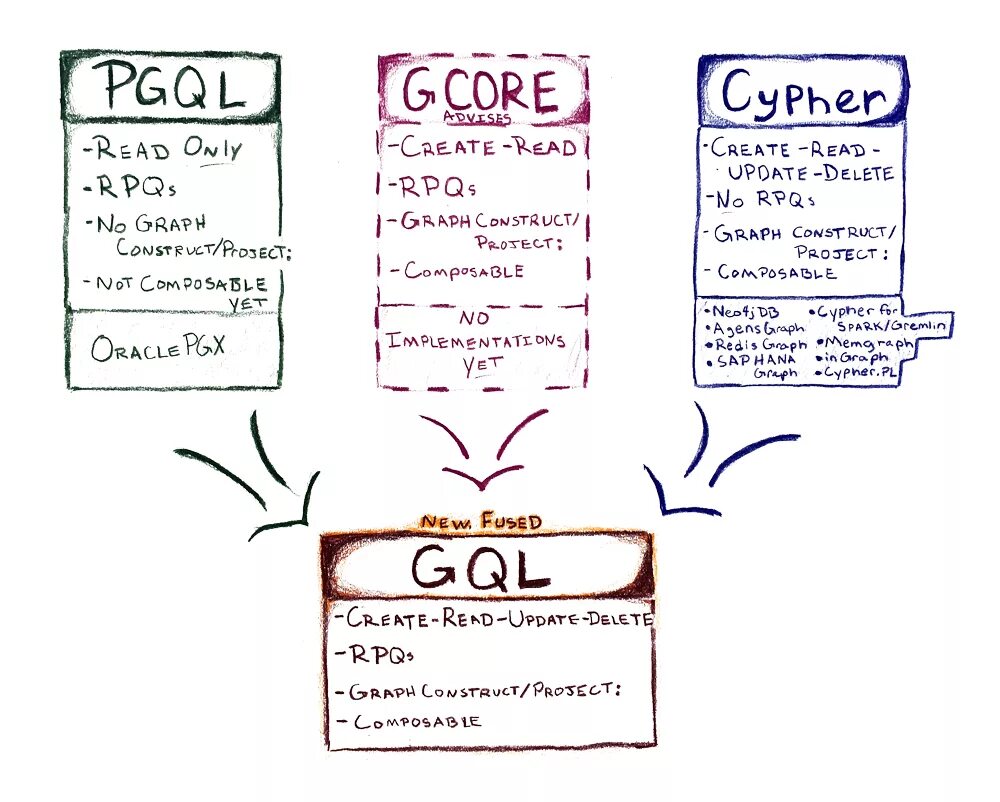 PGQL
-READ ONLY
-RPQs
-NO GRAPH
CONSTRUCT/PROJECT:
-NOT COMPOSABLE
YET
ORACLE PGX
GCORE
ADVISES
-CREATE-READ
-RPQs
-GRAPH CONSTRUCT/
PROJECT:
-COMPOSABLE
NO
IMPLEMENTATIONS
YET
Cypher
-CREATE-READ-
UPDATE-DELETE
-NO RPQs
-GRAPH CONSTRUCT/
PROJECT:
-COMPOSABLE
•Neo4jDB
•AgensGraph
•RedisGraph
•SAPHANA
Graph
•Cypher for
SPARK/Gremlin
•Memgraph
•inGraph
•Cypher.PL
NEW, FUSED
GQL
-CREATE-READ-UPDATE-DELETE
-RPQs
-GRAPH CONSTRUCT/PROJECT:
-COMPOSABLE